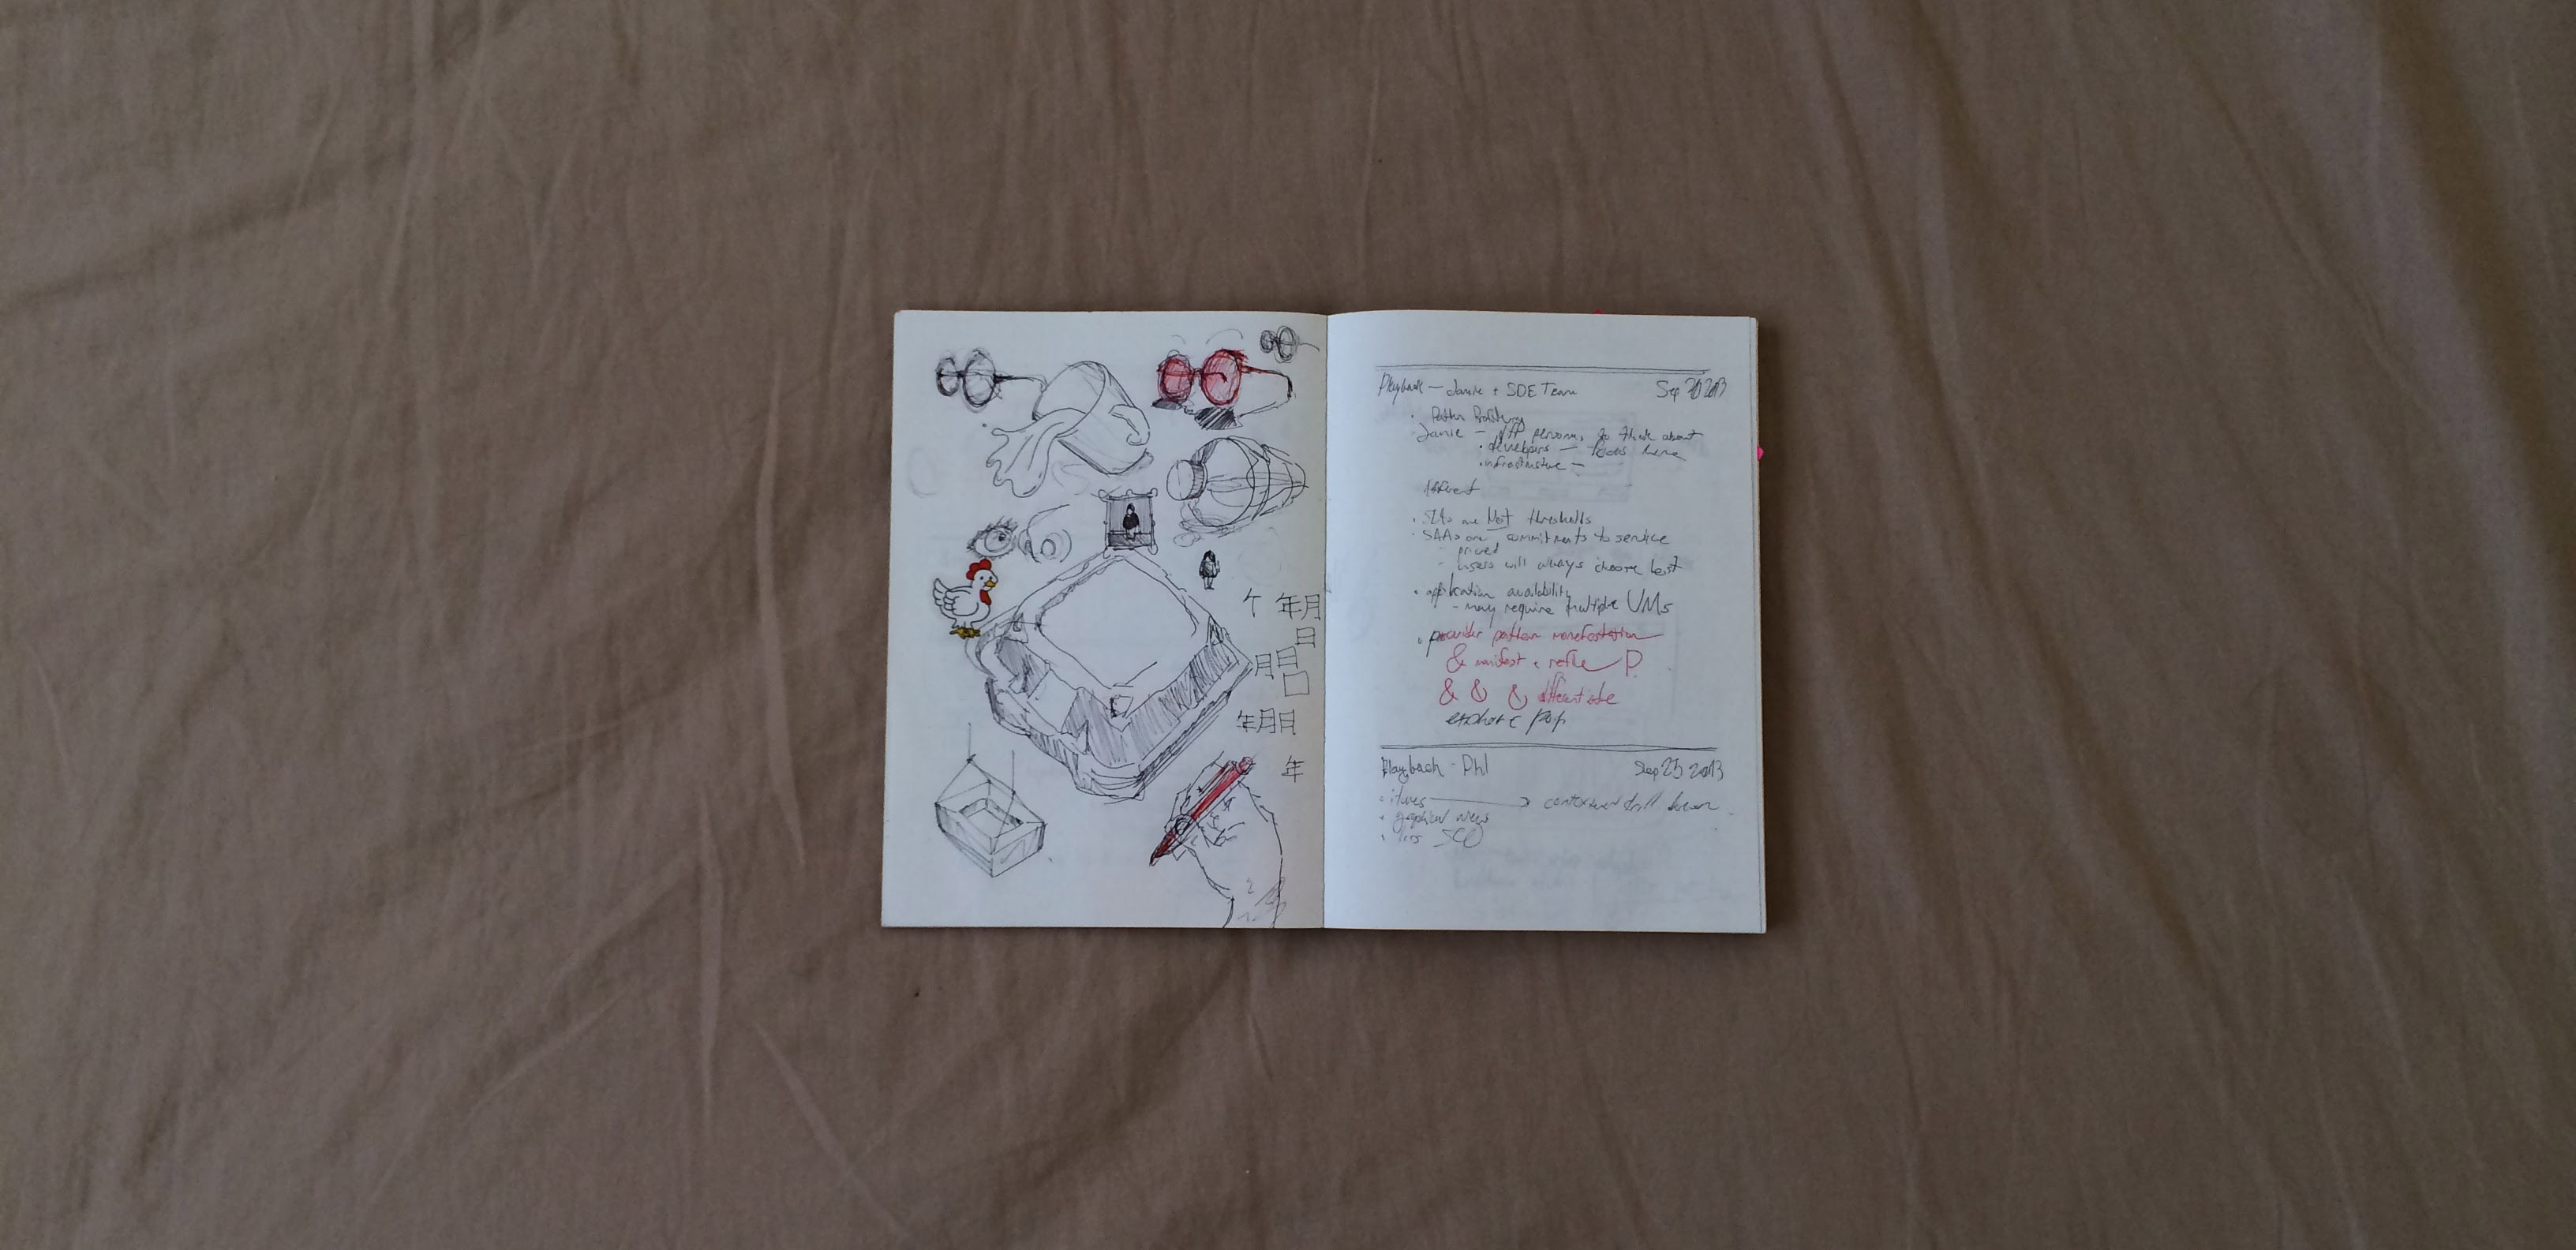 个 年月
日
月日
年月日
年
Playback — Jamie + SDE Team Sep 20 2013
Jamie — persona, to think about
• developers — focus here
• infrastructure —
• SLAs are Not thresholds
• SAAs are commitments to service
- priced
- users will always choose best
• application availability
- may require multiple VMs
• provider pattern manefestation
& manifest & refine P
& & & differentiate
Playback - Phil Sep 25 2013
drill down
• graphical views
• SCO